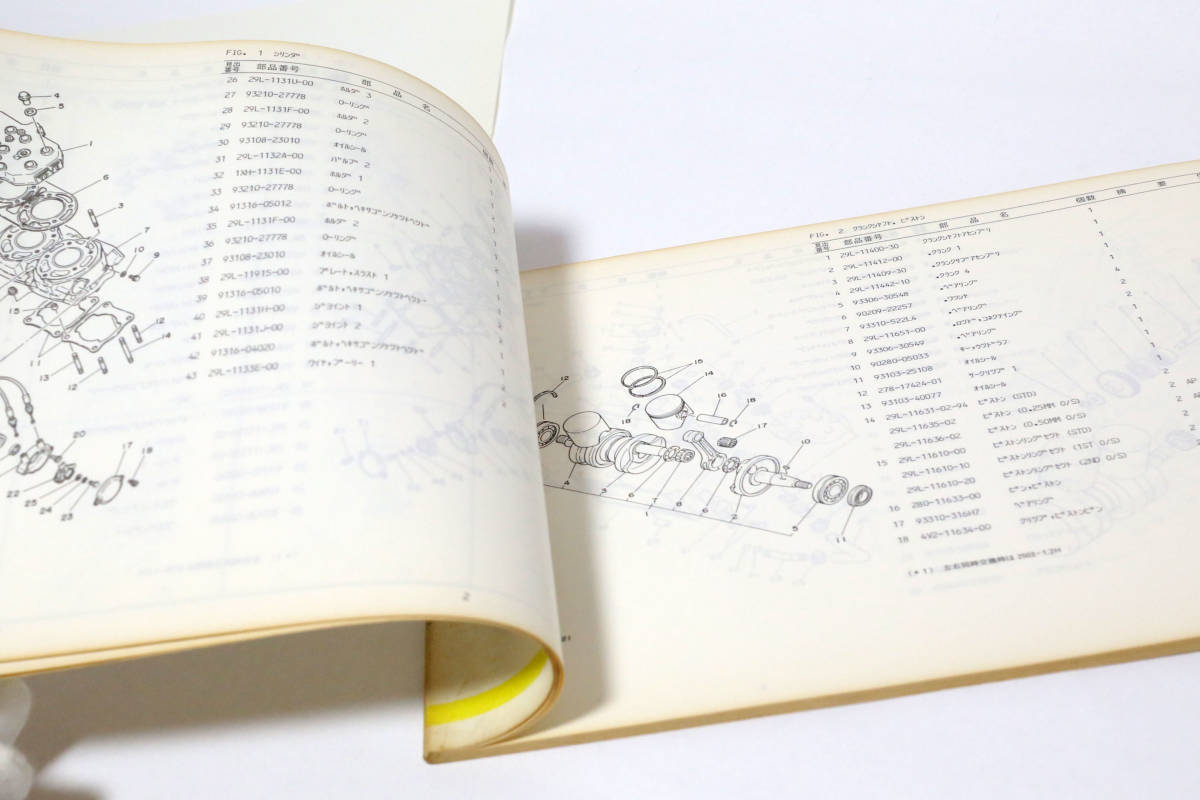 FIG. 1 シリンダ
見出番号 部品番号 部品名
26 29L-1131U-00 ホルダ 3
27 93210-27778 O-リング
28 29L-1131F-00 ホルダ 2
29 93210-27778 O-リング
30 93108-23010 オイルシール
31 29L-1132A-00 バルブ 2
32 1XH-1131E-00 ホルダ 1
33 93210-27778 O-リング
34 91316-05012 ボルト,ヘキサゴンソケットヘッド
35 29L-1131F-00 ホルダ 2
36 93210-27778 O-リング
37 93108-23010 オイルシール
38 29L-11915-00 プレート,スラスト 1
39 91316-05010 ボルト,ヘキサゴンソケットヘッド
40 29L-1131H-00 ジョイント 1
41 29L-1131J-00 ジョイント 2
42 91316-04020 ボルト,ヘキサゴンソケットヘッド
43 29L-1133E-00 ワイヤ,プーリー 1
2
FIG. 2 クランクシャフト. ピストン
見出番号 部品番号 部品名 個数 摘要
1 29L-11400-30 クランクシャフトアセンブリ 1
2 29L-11412-00 .クランク 1 1
3 29L-11409-30 .クランクサブアセンブリ 1
4 29L-11442-10 .クランク 4
5 93306-30548 .ベアリング
6 90209-22257 .ワッシャ 4
7 93310-522L4 .ベアリング 2
8 29L-11651-00 .ロッド,コネクティング
9 93306-30549 .ベアリング
10 90280-05033 キー,ウッドラフ
11 93103-25108 オイルシール
12 278-17424-01 サークリップ 1
13 93103-40077 オイルシール
14 29L-11631-02-94 ピストン (STD)
29L-11635-02 ピストン (0.25MM O/S)
29L-11636-02 ピストン (0.50MM O/S)
15 29L-11610-00 ピストンリングセット (STD)
29L-11610-10 ピストンリングセット (1ST O/S)
29L-11610-20 ピストンリングセット (2ND O/S)
16 280-11633-00 ピン,ピストン
17 93310-316H7 ベアリング
18 4V2-11634-00 クリップ,ピストンピン
(*1) 左右同時交換時は